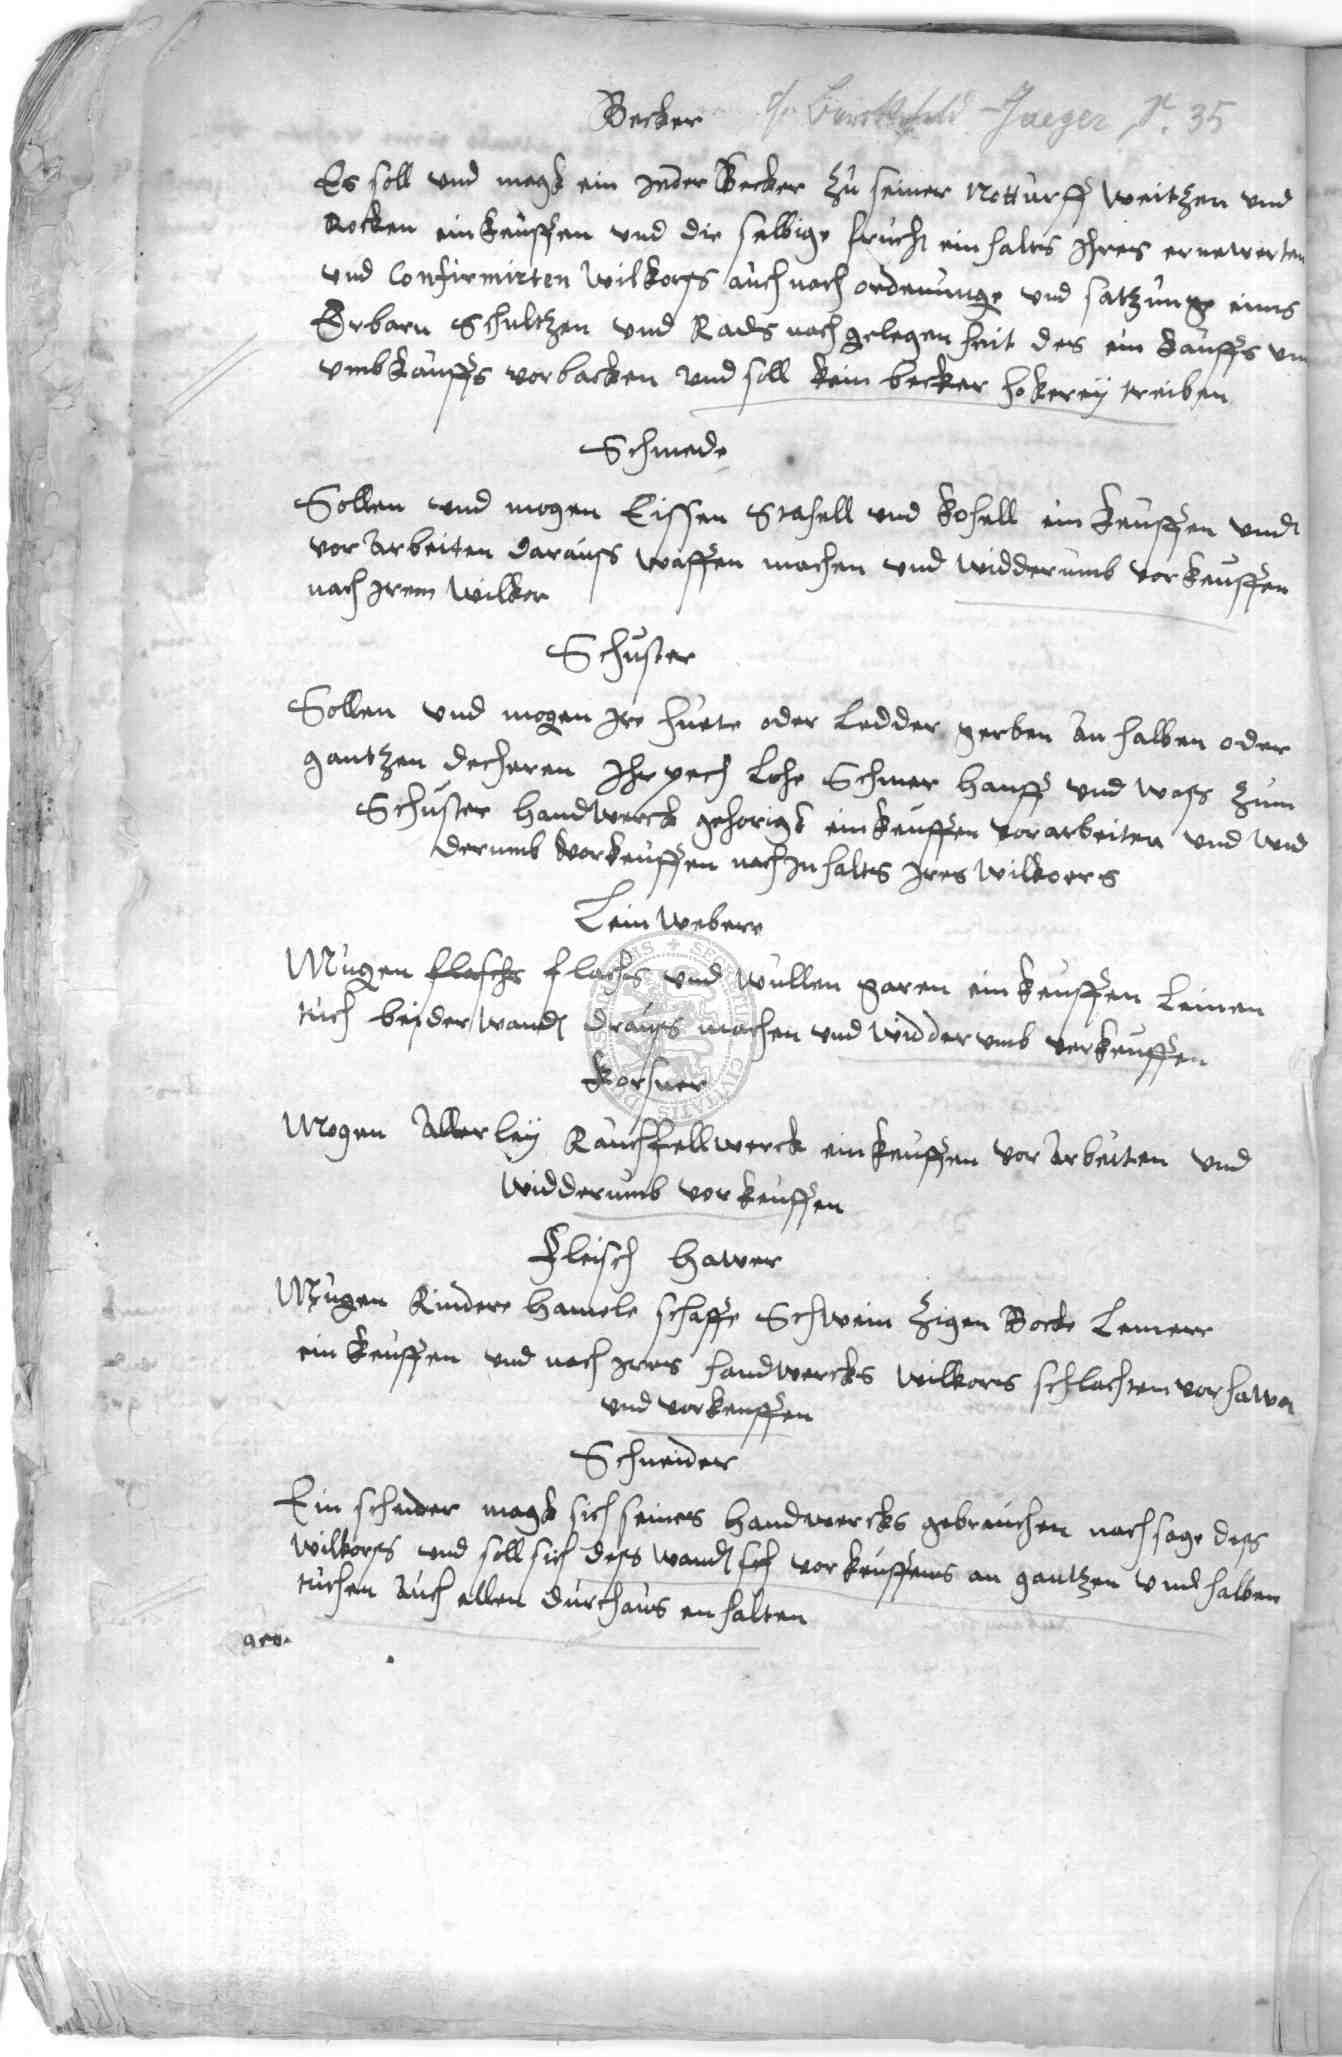 Becker
Jaeger, S. 35
Es soll vnd magk ein Jeder Becker zu seiner notturfft weitzen vnd
Rocken ein keuffen vnd die selbige frucht ein halts Ihres ernewerten
vnd Confirmirten Wilkors auch nach ordenunge vnd satzunge eins
Erbarn Schultzen vnd Rads nach gelegen heit des ein kauffs vn
vmbkauffs vorbacken vnd soll kein becker hokereÿ treiben
Schmede
Sollen vnd mogen Eissen Stahell vnd kohell ein keuffen vnd
vor arbeiten darauss waffen machen vnd widderumb vorkeuffen
nach Jrem Wilkor
Schuster
Sollen vnd mogen Jre huete oder Ledder gerben an halben oder
gantzen decheren Ihr pech Lohe Schmer hanff vnd wass zum
Schuster handwerck gehorigk einkeuffen vorarbeiten vnd wid
derumb vorkeuffen nach Jnhalts Jres Wilkoers
Lein webere
Mugen flachs flachs vnd wullen garen ein keuffen Leinen
tuch beyderwand drauss machen vnd widder vmb verkeuffen
Korsner
Mogen allerleÿ Rauchfellwerck ein keuffen vor arbeiten vnd
widderumb vorkeuffen
Fleisch hawer
Mugen Rindere hamele schaffe Schwein Zigen Bocke Lemere
ein keuffen vnd nach Jres handwercks wilkors schlachten vorhawen
vnd vorkeuffen
Schneider
Ein schnider magk sich seines handwercks gebrauchen nach sage dess
Wilkorss vnd soll sich dess wand vorkeuffens an gantzen vnd halben
tuchen auch ellen durchaus enhalten